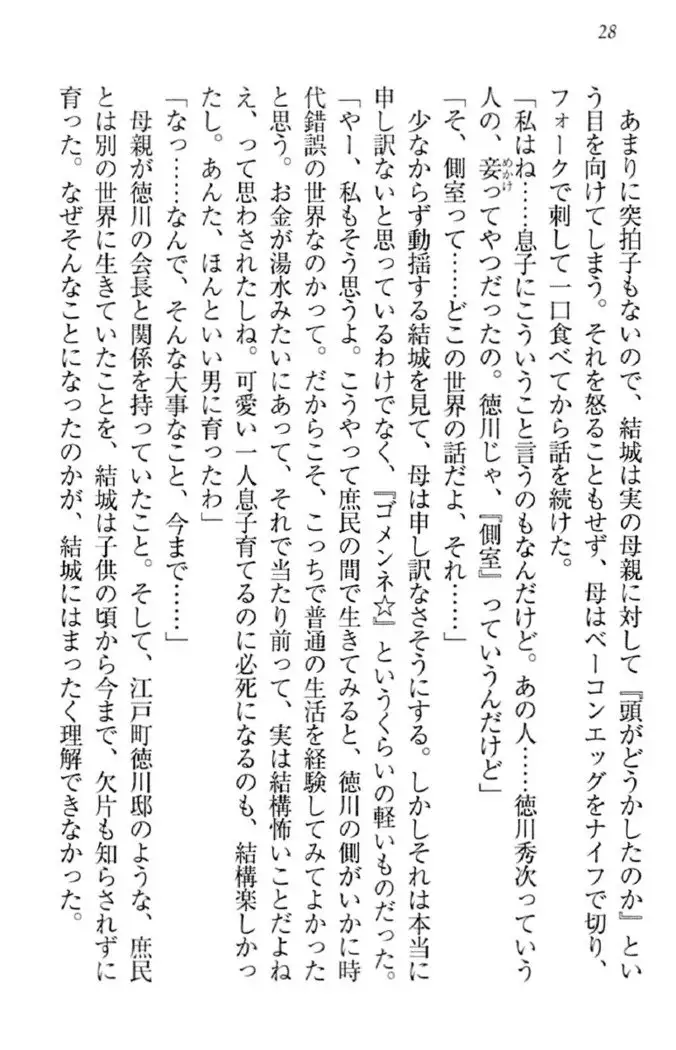 28
あまりに突拍子もないので、結城は実の母親に対して『頭がどうかしたのか』とい
う目を向けてしまう。それを怒ることもせず、母はベーコンエッグをナイフで切り、
フォークで刺して一口食べてから話を続けた。
「私はね……息子にこういうこと言うのもなんだけど。あの人……徳川秀次っていう
人の、妾ってやつだったの。徳川じゃ、『側室』っていうんだけど」
めかけ
「そ、側室って……どこの世界の話だよ、それ……」
少なからず動揺する結城を見て、母は申し訳なさそうにする。しかしそれは本当に
申し訳ないと思っているわけでなく、『ゴメンネ☆』というくらいの軽いものだった。
「やー、私もそう思うよ。こうやって庶民の間で生きてみると、徳川の側がいかに時
代錯誤の世界なのかって。だからこそ、こっちで普通の生活を経験してみてよかった
と思う。お金が湯水みたいにあって、それで当たり前って、実は結構怖いことだよね
え、って思わされたしね。可愛い一人息子育てるのに必死になるのも、結構楽しかっ
たし。あんた、ほんといい男に育ったわ」
「なっ……なんで、そんな大事なこと、今まで……」
母親が徳川の会長と関係を持っていたこと。そして、江戸町徳川邸のような、庶民
とは別の世界に生きていたことを、結城は子供の頃から今まで、欠片も知らされずに
育った。なぜそんなことになったのかが、結城にはまったく理解できなかった。